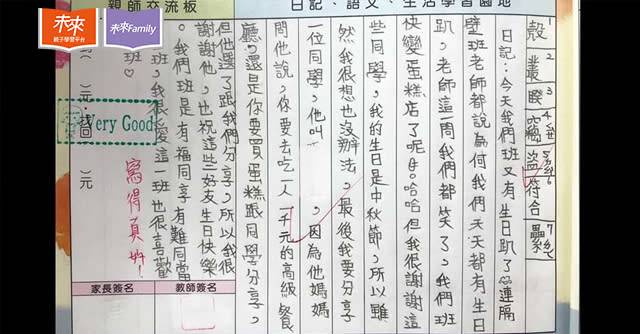 未來
親子學習平台
未來Family
親師交流板
日記、語文、生活學習園地
殼 叢 睽 窺 盜 符合
日記：今天我們班又有生日趴了連隔
壁班老師都說為何我們天天都有生日
趴，老師這一問我們都笑了，我們班
快變蛋糕店了呢哈哈但我很謝謝這
些同學，我的生日是中秋節，所以雖
然我很想也沒辦法，最後我要分享
一位同學，他叫 ，因為他媽媽
問他說，你要去吃一人一千元的高級餐
廳，還是你要買蛋糕跟同學分享，
但他選了跟我們分享，所以我很
謝謝他，也祝這些好友生日快樂
。我們班是有福同享有難同當
班，我很愛這一班也很喜歡
班♡
Very Good
寫得真好！
元
元
家長簽名
教師簽名